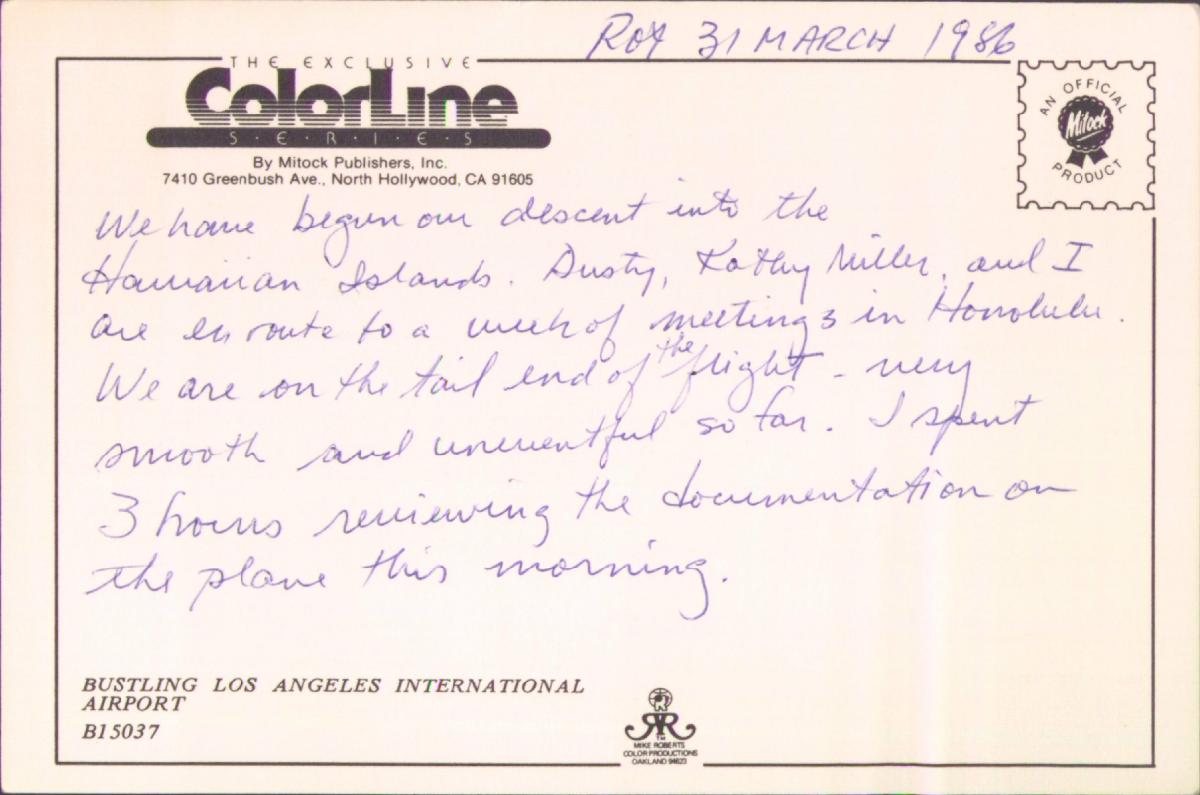 Roy 31 MARCH 1986
THE EXCLUSIVE
ColorLine
S·E·R·I·E·S
By Mitock Publishers, Inc.
7410 Greenbush Ave., North Hollywood, CA 91605
AN OFFICIAL
Mitock
PRODUCT
We have begun our descent into the
Hawaiian Islands. Dusty, Kathy Miller, and I
are en route to a week of meetings in Honolulu.
We are on the tail end of the flight - very
smooth and uneventful so far. I spent
3 hours reviewing the documentation on
the plane this morning.
BUSTLING LOS ANGELES INTERNATIONAL
AIRPORT
B15037
TM
MIKE ROBERTS
COLOR PRODUCTIONS
OAKLAND 94623